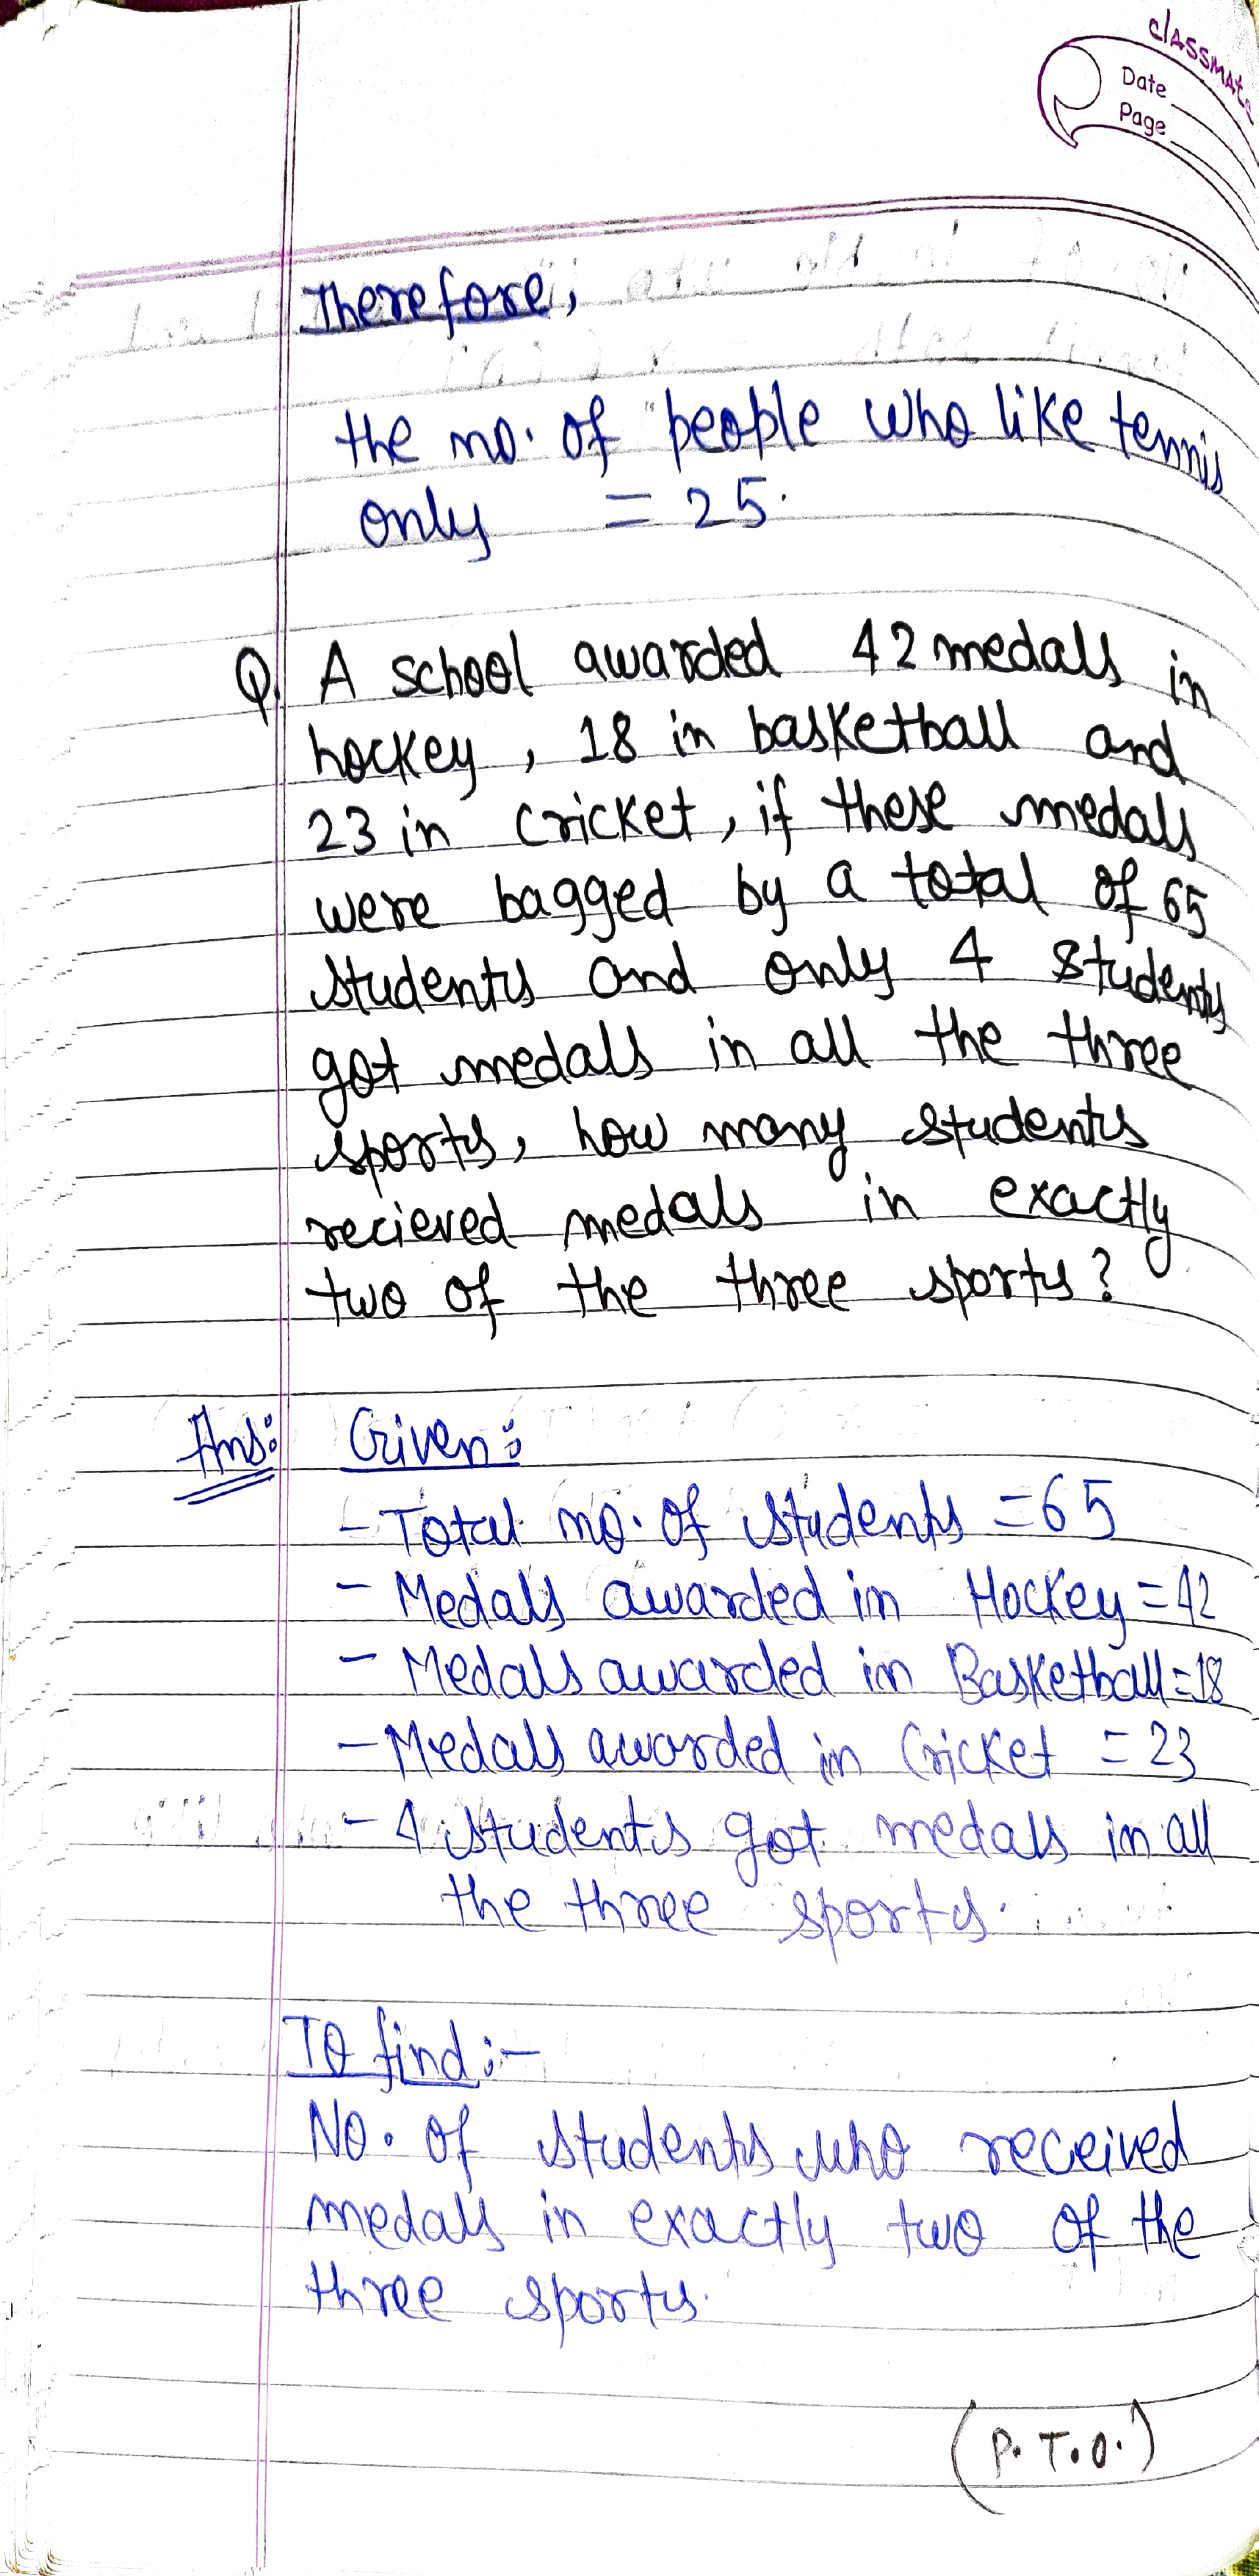 classmate
Date
Page
Therefore,
the no. of people who like tennis
only = 25.
Q. A school awarded 42 medals in
hockey, 18 in basketball and
23 in cricket, if these medals
were bagged by a total of 65
students and only 4 students
got medals in all the three
sports, how many students
recieved medals in exactly
two of the three sports?
Ans: Given:
- Total no. of students = 65
- Medals awarded in Hockey = 42
- Medals awarded in Basketball = 18
- Medals awarded in Cricket = 23
- 4 students got medals in all
the three sports.
To find :-
No. of students who received
medals in exactly two of the
three sports.
(P.T.O.)